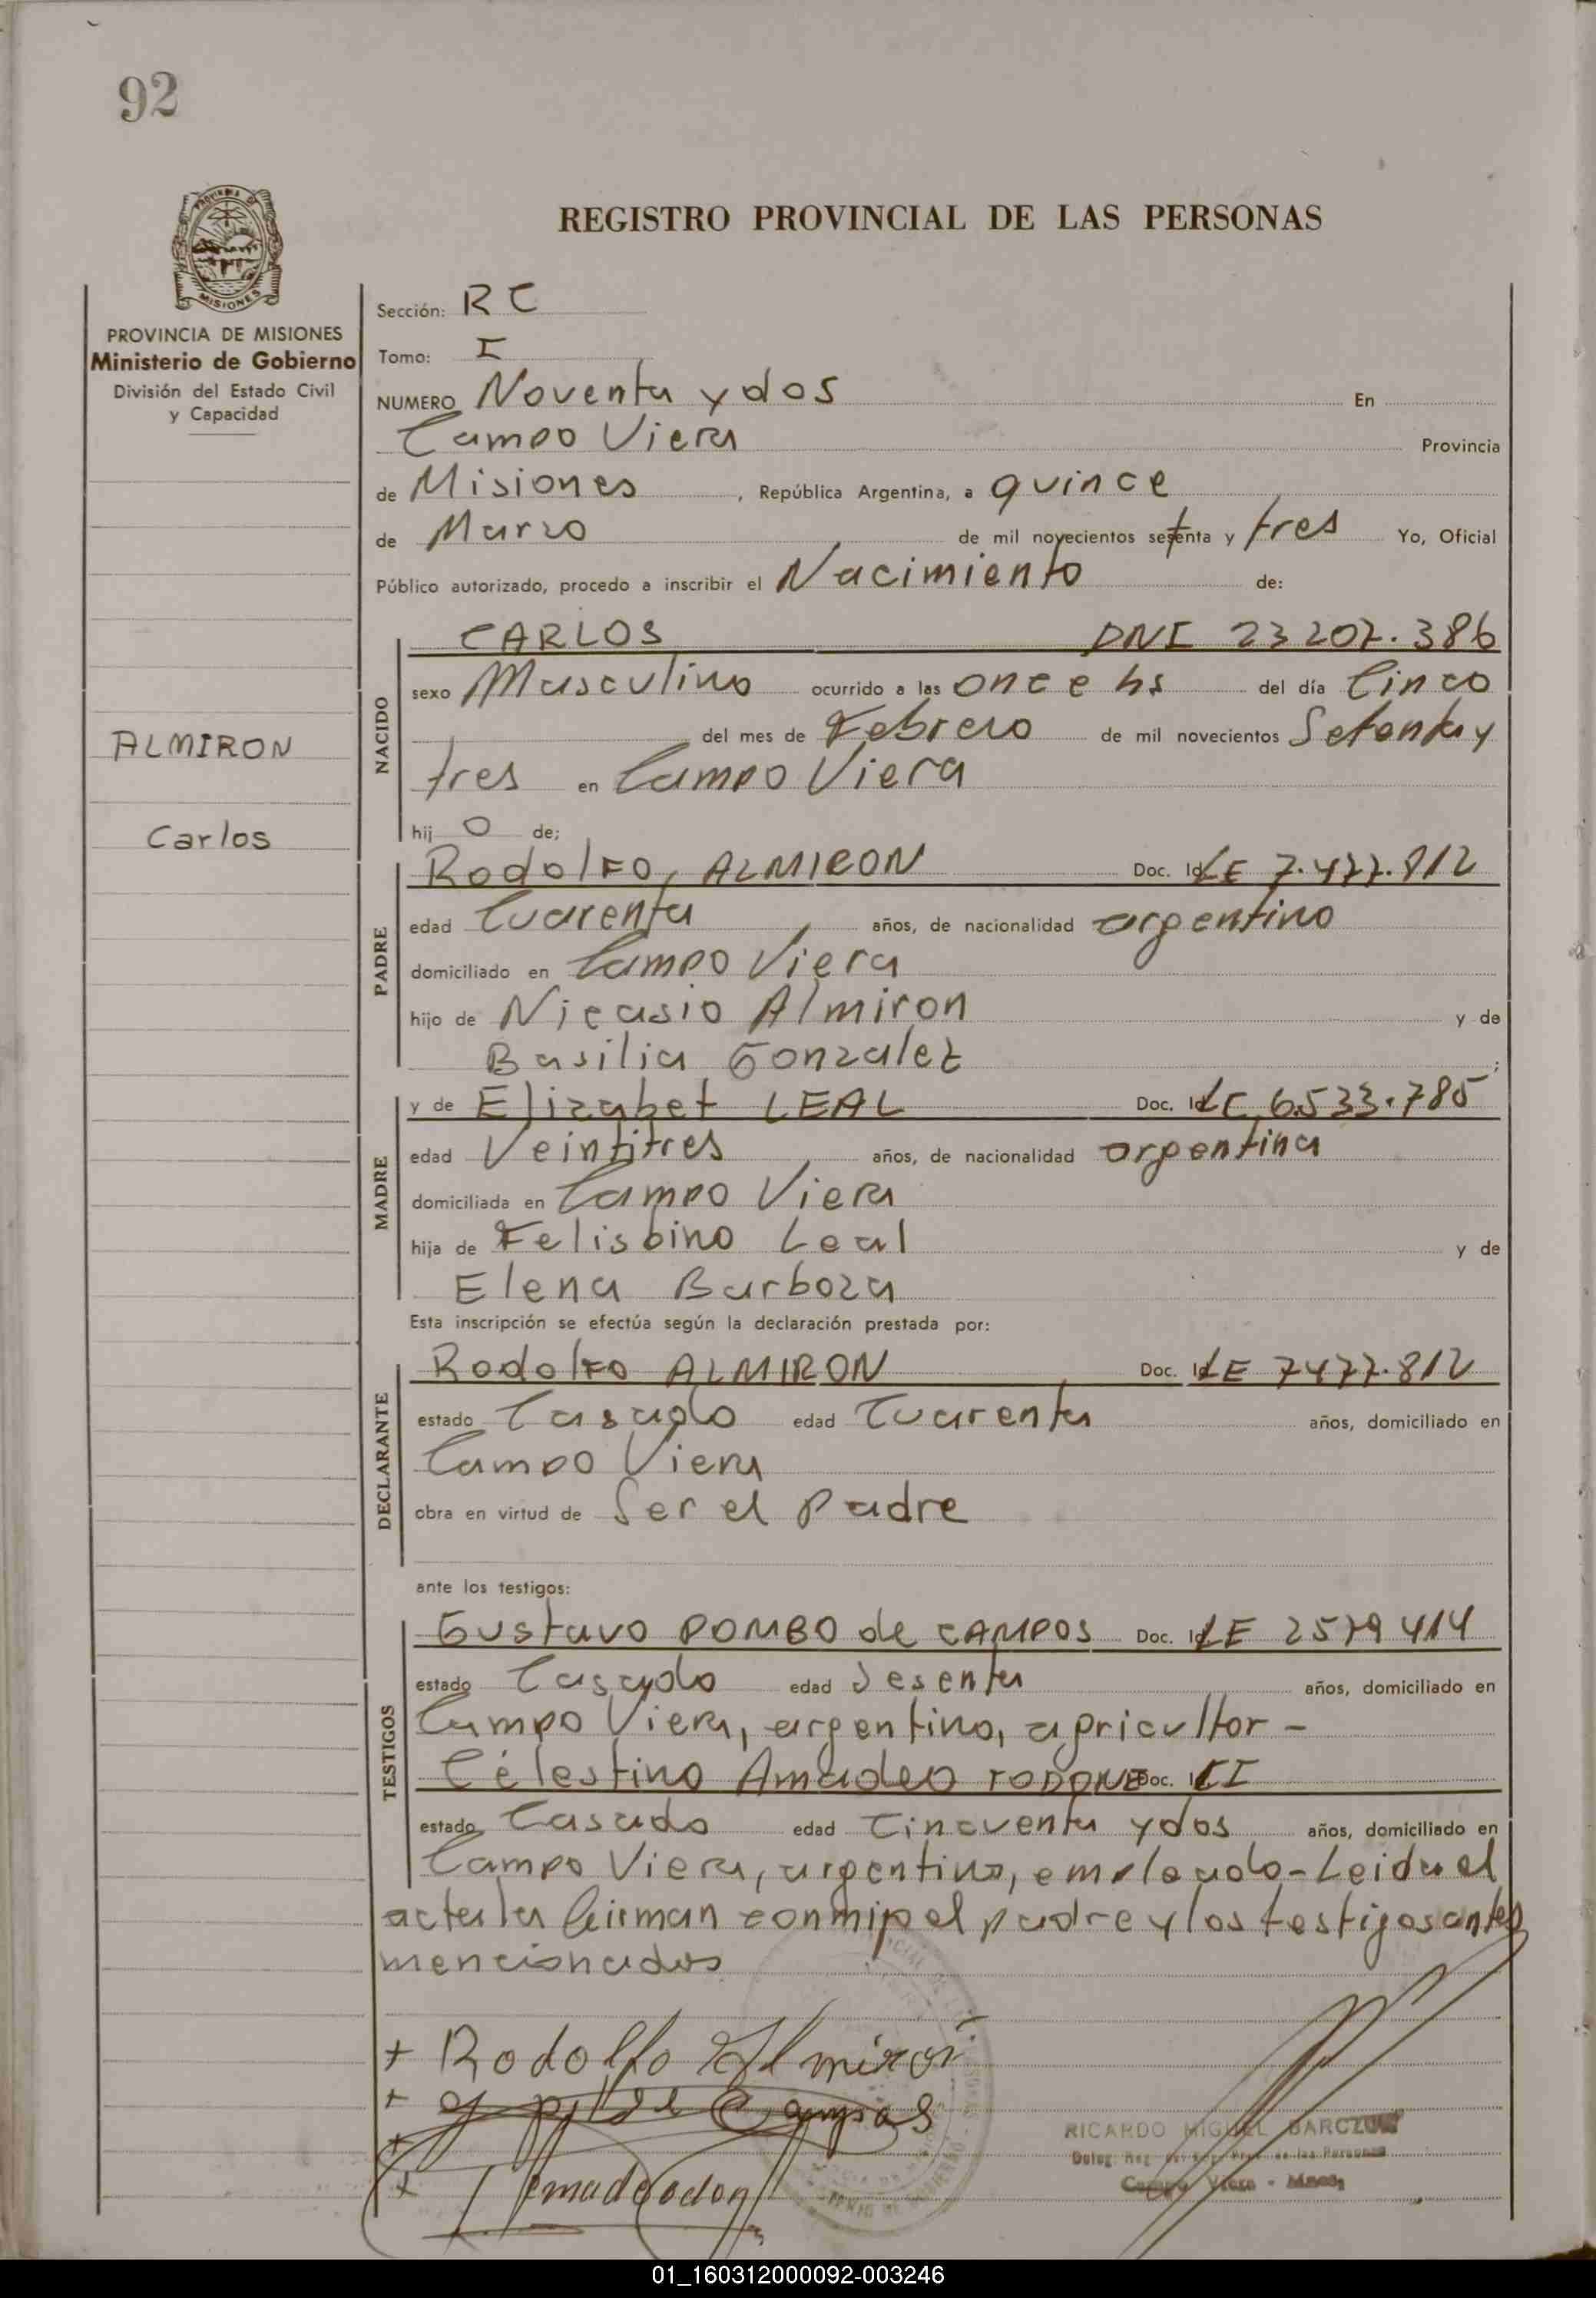 92
REGISTRO PROVINCIAL DE LAS PERSONAS
PROVINCIA DE MISIONES
Ministerio de Gobierno
División del Estado Civil
y Capacidad
ALMIRON
Carlos
Sección: R C
Tomo: I
NUMERO Noventa y dos En
Campo Viera Provincia
de Misiones, República Argentina, a quince
de Marzo de mil novecientos setenta y tres Yo, Oficial
Público autorizado, procedo a inscribir el Nacimiento de:
NACIDO
CARLOS DNI 23207.386
sexo Masculino ocurrido a las once hs del día Cinco
del mes de Febrero de mil novecientos Setenta y
tres en Campo Viera
hij o de;
PADRE
Rodolfo, ALMIRON Doc. Id LE 7.477.812
edad Cuarenta años, de nacionalidad argentino
domiciliado en Campo Viera
hijo de Nicasio Almiron y de
Basilia Gonzalez ;
MADRE
y de Elizabet LEAL Doc. Id LC 6.533.785
edad Veintitres años, de nacionalidad argentina
domiciliada en Campo Viera
hija de Felisbino Leal y de
Elena Barboza
Esta inscripción se efectúa según la declaración prestada por:
DECLARANTE
Rodolfo ALMIRON Doc. Id LE 7477.812
estado Casado edad Cuarenta años, domiciliado en
Campo Viera
obra en virtud de Ser el padre
ante los testigos:
TESTIGOS
Gustavo POMBO de CAMPOS Doc. Id LE 2579414
estado Casado edad Sesenta años, domiciliado en
Campo Viera, argentino, agricultor -
Celestino Amadeo Doc. CI
estado Casado edad Cincuenta y dos años, domiciliado en
Campo Viera, argentino, empleado - Leida el
acta la firman conmigo el padre y los testigos antes
mencionados
+ Rodolfo Almiron
+ de Campos
+
RICARDO MIGUEL
Campo Viera - Mnes.
01_160312000092-003246